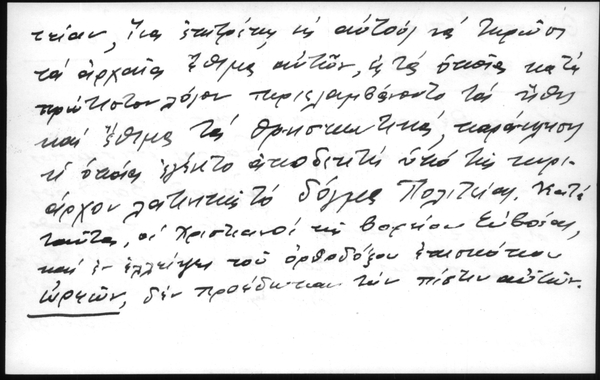 τείαν, ἵνα ἐπιτρέπῃ εἰς αὐτοὺς νά τηρῶσι
τά ἀρχαῖα ἔθιμα αὐτῶν, εἰς τά ὁποῖα κατά
πρώτιστον λόγον περιελαμβάνοντο τά ἤθη
καί ἔθιμα τά θρησκευτικά, παράκλησις
ἡ ὁποία ἐγένετο ἀποδεκτή ὑπό τῆς κυρι-
άρχου λατινικῆς τό δόγμα Πολιτείας. Κατά
ταῦτα, οἱ Χριστιανοί τῆς βορείου Εὐβοίας,
καί ἐν ἐλλείψει τοῦ ὀρθοδόξου ἐπισκόπου
Ὠρεῶν, δέν προέδωκαν τήν πίστιν αὐτῶν.